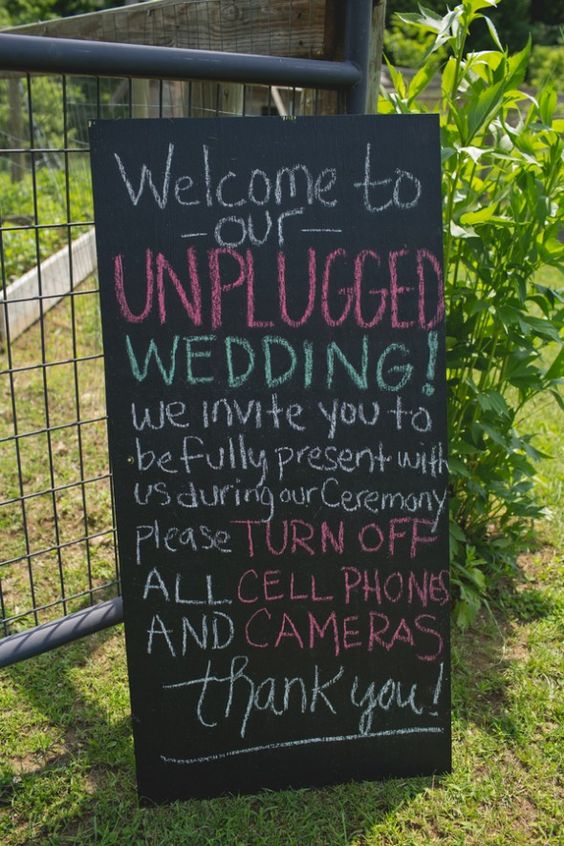 Welcome to
-our-
UNPLUGGED
WEDDING!
We invite you to
be fully present with
us during our Ceremony
please TURN OFF
ALL CELL PHONES
AND CAMERAS
thank you!